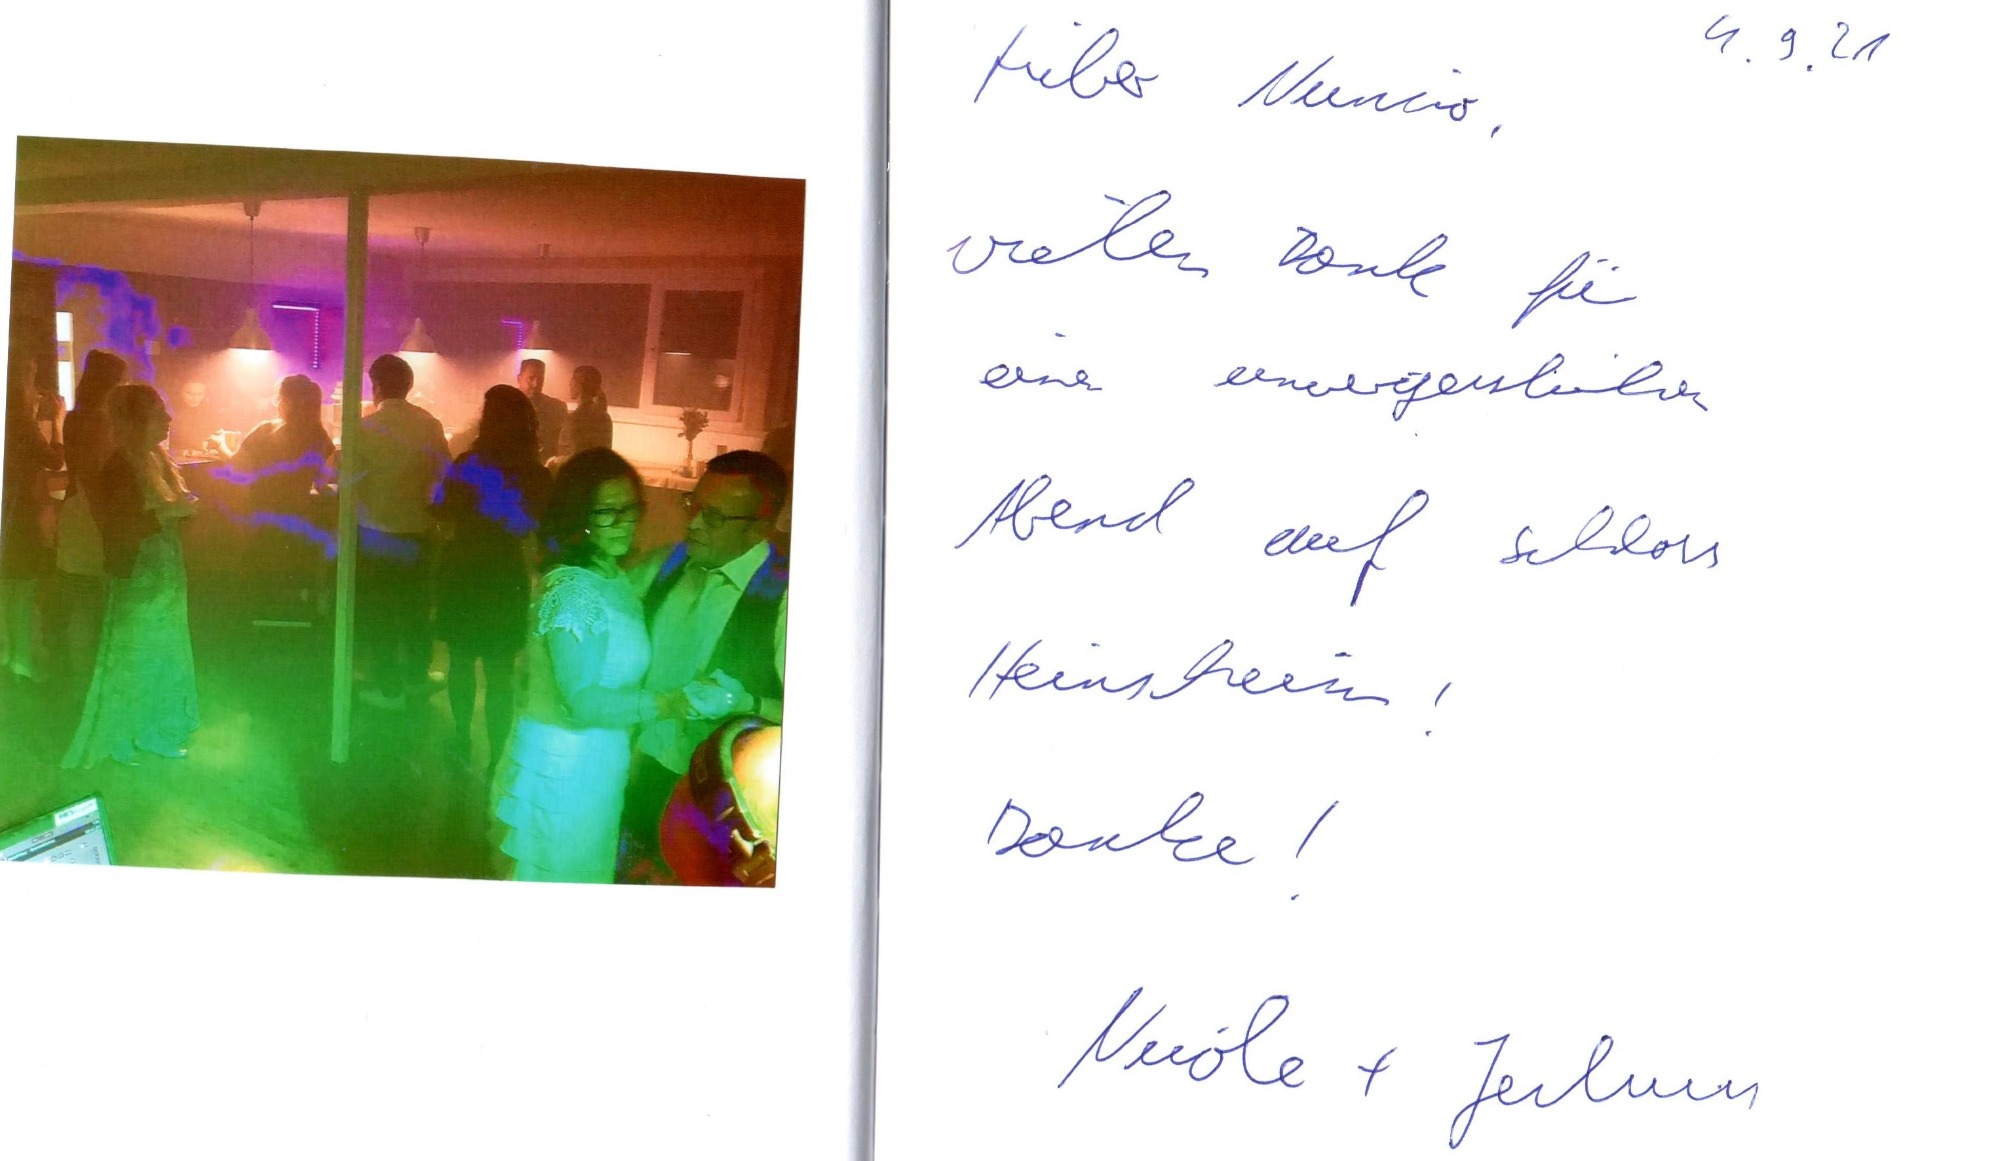 4.9.21
Lieber Nunzio,
vielen Dank für
einen unvergesslichen
Abend auf Schloss
Heinsheim!
Danke!
Nicole +